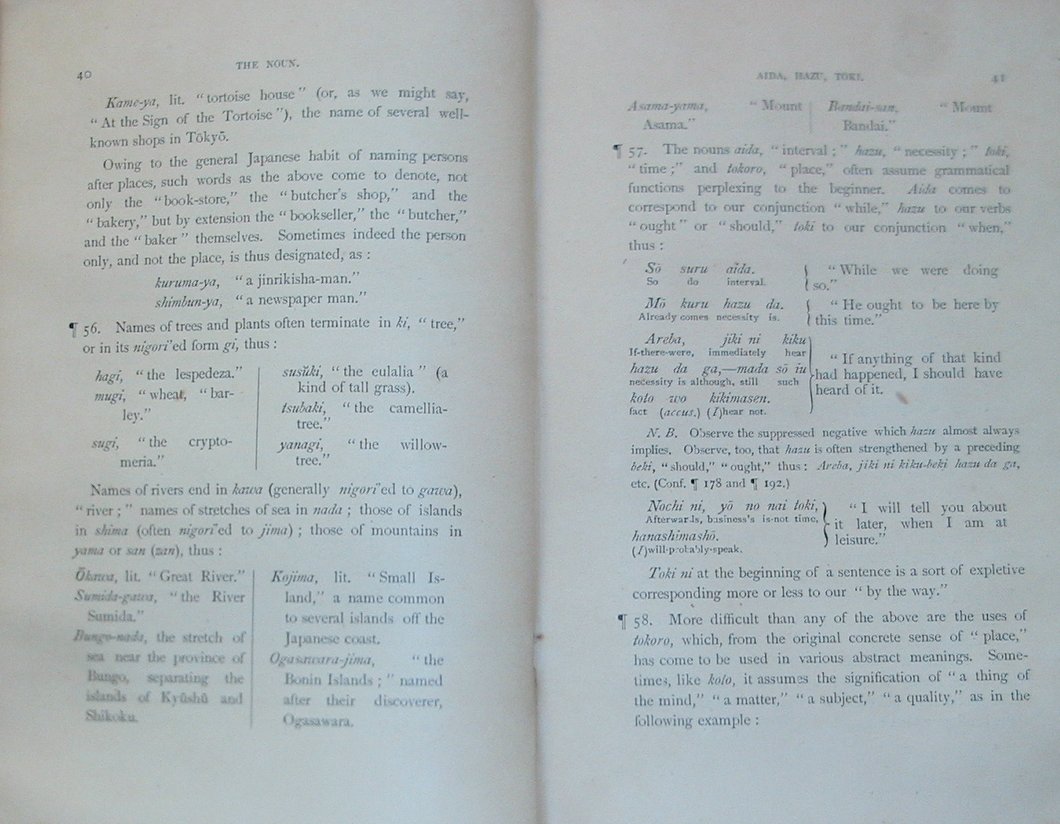 40
THE NOUN.
Kame-ya, lit. “tortoise house” (or, as we might say,
“At the Sign of the Tortoise”), the name of several well-
known shops in Tōkyō.
Owing to the general Japanese habit of naming persons
after places, such words as the above come to denote, not
only the “book-store,” the “butcher's shop,” and the
“bakery,” but by extension the “bookseller,” the “butcher,”
and the “baker” themselves. Sometimes indeed the person
only, and not the place, is thus designated, as :
kuruma-ya, “a jinrikisha-man.”
shimbun-ya, “a newspaper man.”
¶ 56. Names of trees and plants often terminate in ki, “tree,”
or in its nigori'ed form gi, thus :
hagi, “the lespedeza.”
mugi, “wheat, “bar-
ley.”
sugi, “the crypto-
meria.”
susŭki, “the eulalia” (a
kind of tall grass).
tsubaki, “the camellia-
tree.”
yanagi, “the willow-
tree.”
Names of rivers end in kawa (generally nigori'ed to gawa),
“river ;” names of stretches of sea in nada ; those of islands
in shima (often nigori'ed to jima) ; those of mountains in
yama or san (zan), thus :
Ōkawa, lit. “Great River.”
Sumida-gawa, “the River
Sumida.”
Bungo-nada, the stretch of
sea near the province of
Bungo, separating the
islands of Kyūshū and
Shikoku.
Kojima, lit. “Small Is-
land,” a name common
to several islands off the
Japanese coast.
Ogasawara-jima, “the
Bonin Islands ;” named
after their discoverer,
Ogasawara.
AIDA, HAZU, TOKI.
41
Asama-yama, “Mount
Asama.”
Bandai-san, “Mount
Bandai.”
¶ 57. The nouns aida, “interval ;” hazu, “necessity ;” toki,
“time ;” and tokoro, “place,” often assume grammatical
functions perplexing to the beginner. Aida comes to
correspond to our conjunction “while,” hazu to our verbs
“ought” or “should,” toki to our conjunction “when,”
thus :
Sō suru aida.
So do interval.
“While we were doing
so.”
Mō kuru hazu da.
Already comes necessity is.
“He ought to be here by
this time.”
Areba, jiki ni kiku
If-there-were, immediately hear
hazu da ga,—mada sō iu
necessity is although, still such
koto wo kikimasen.
fact (accus.) (I)hear not.
“If anything of that kind
had happened, I should have
heard of it.
N. B. Observe the suppressed negative which hazu almost always
implies. Observe, too, that hazu is often strengthened by a preceding
beki, “should,” “ought,” thus : Areba, jiki ni kiku-beki hazu da ga,
etc. (Conf. ¶ 178 and ¶ 192.)
Nochi ni, yō no nai toki,
Afterwards, business's is-not time,
hanashimashō.
(I)will-probably-speak.
“I will tell you about
it later, when I am at
leisure.”
Toki ni at the beginning of a sentence is a sort of expletive
corresponding more or less to our “by the way.”
¶ 58. More difficult than any of the above are the uses of
tokoro, which, from the original concrete sense of “place,”
has come to be used in various abstract meanings. Some-
times, like koto, it assumes the signification of “a thing of
the mind,” “a matter,” “a subject,” “a quality,” as in the
following example :